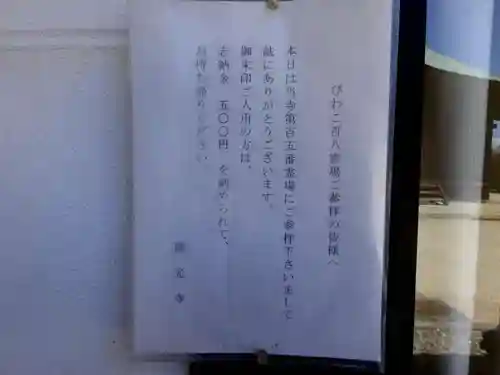 びわこ百八霊場ご参拝の皆様へ
本日は当寺第百五番霊場にご参拝下さいまして
誠にありがとうございます。
御朱印ご入用の方は、
お納金 五〇〇円 を納められて、
お持ち帰りください。